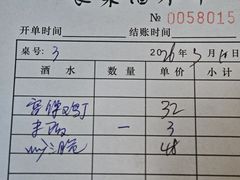 № 0058015
开单时间 结账时间
桌号: 3 2026年3月4日
酒水 数量 单价 小计
宫保鸡丁 32
米饭 一 3
48